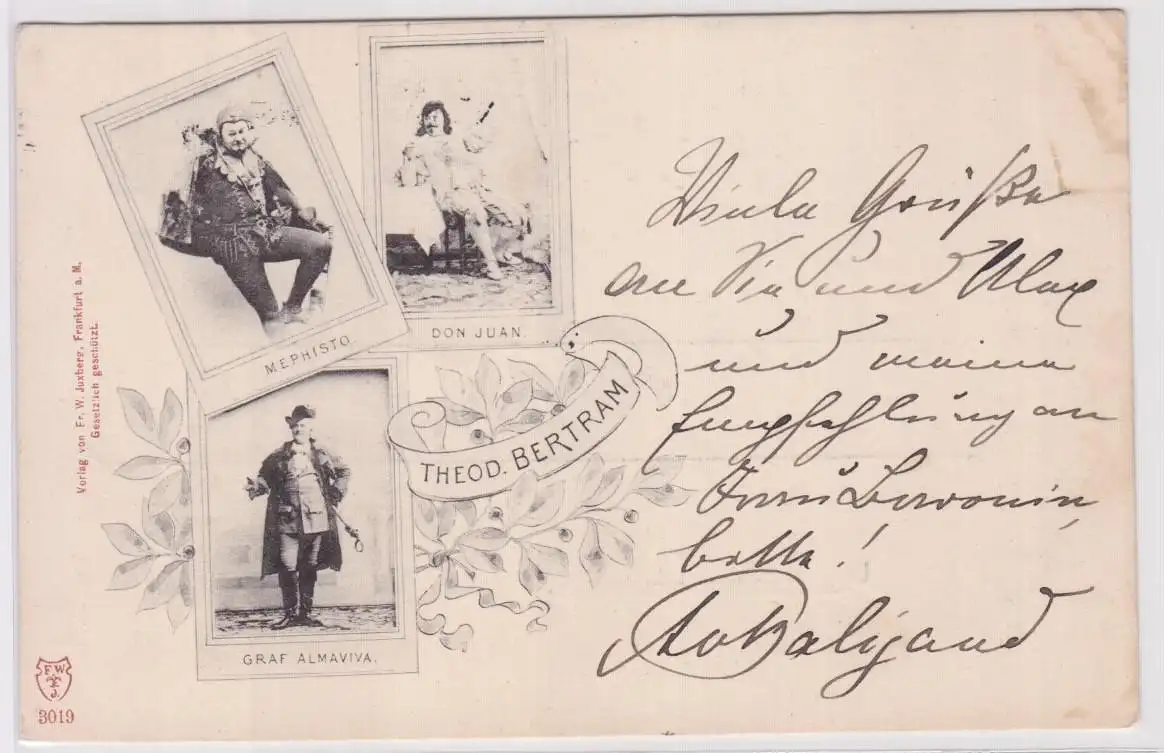 MEPHISTO.
DON JUAN.
THEOD. BERTRAM
GRAF ALMAVIVA.
Verlag von Fr. W. Juxberg, Frankfurt a. M.
Gesetzlich geschützt.
F W
J.
3019
Viele Grüße
an Sie und Max
und meine
Empfehlung an
Frau Baronin,
bitte!